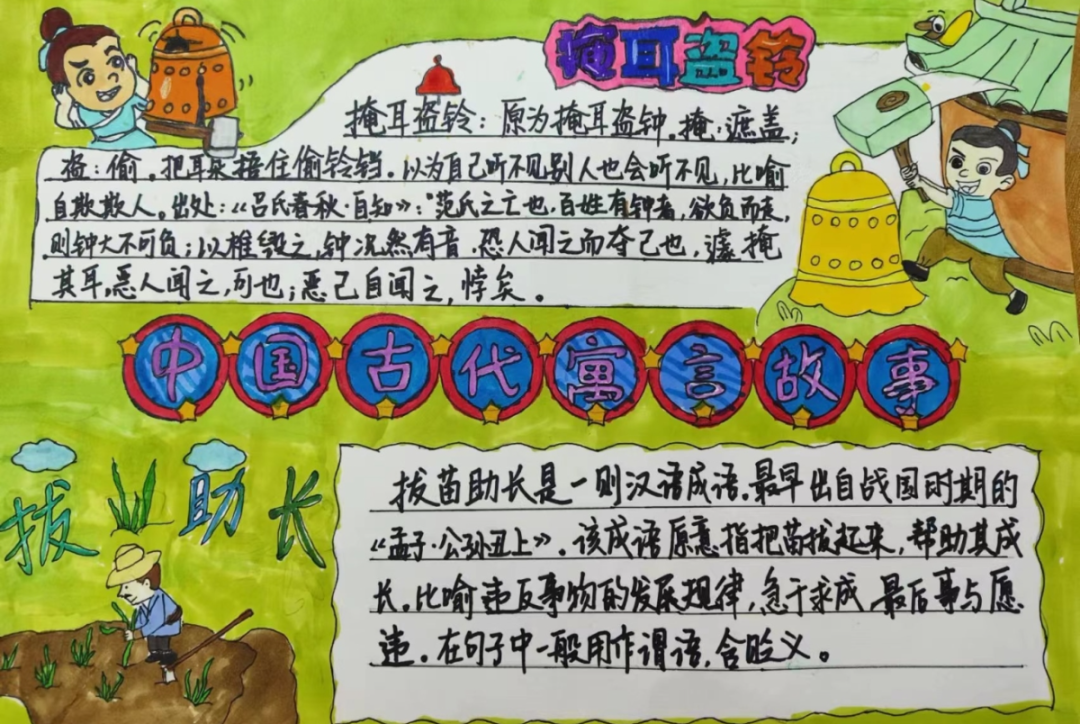 掩耳盗铃
掩耳盗铃：原为掩耳盗钟。掩：遮盖；
盗：偷。把耳朵捂住偷铃铛。以为自己听不见别人也会听不见，比喻
自欺欺人。出处：《吕氏春秋·自知》：“范氏之亡也，百姓有钟者，欲负而走，
则钟大不可负；以椎毁之，钟况然有音。恐人闻之而夺己也，遽掩
其耳，恶人闻之，可也；恶己自闻之，悖矣。
中国古代寓言故事
拔 助长
拔苗助长是一则汉语成语。最早出自战国时期的
《孟子·公孙丑上》。该成语原意指把苗拔起来，帮助其成
长。比喻违反事物的发展规律，急于求成，最后事与愿
违。在句子中一般用作谓语，含贬义。